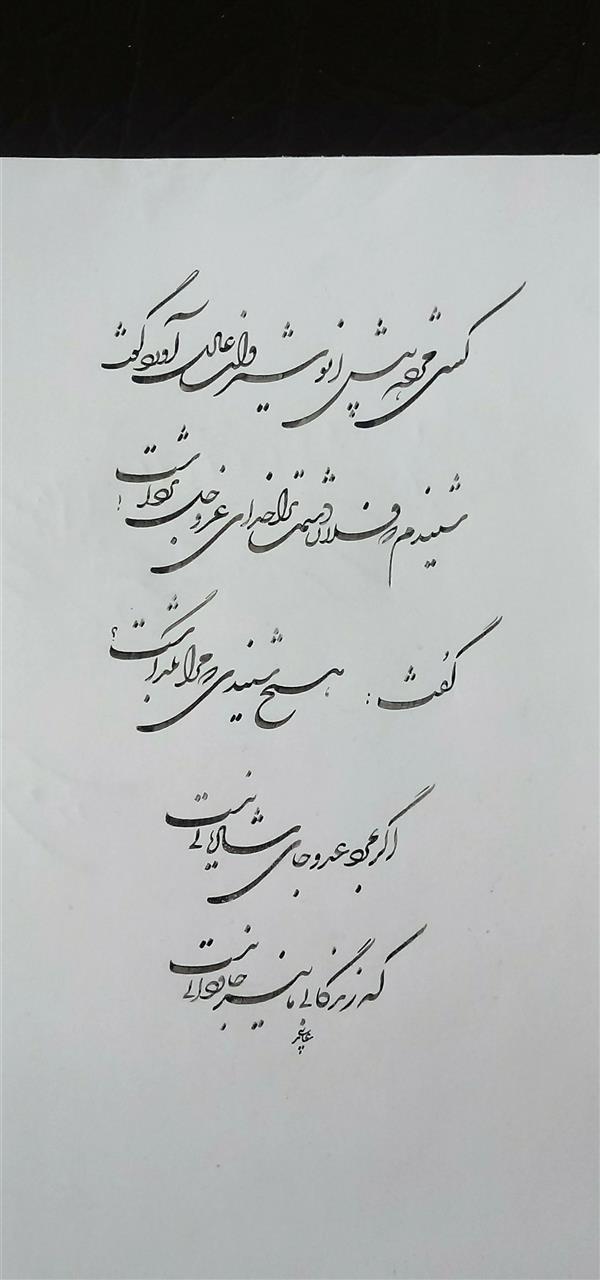 کسی مژده پیش انوشیروان عادل آورد گفت
شنیدم که فلان دشمن ترا خدای عزوجل برداشت!
گفت: هیچ شنیدی که مرا بگذاشت؟
اگر بمرد عدو جای شادمانی نیست
که زندگانی ما نیز جاودانی نیست